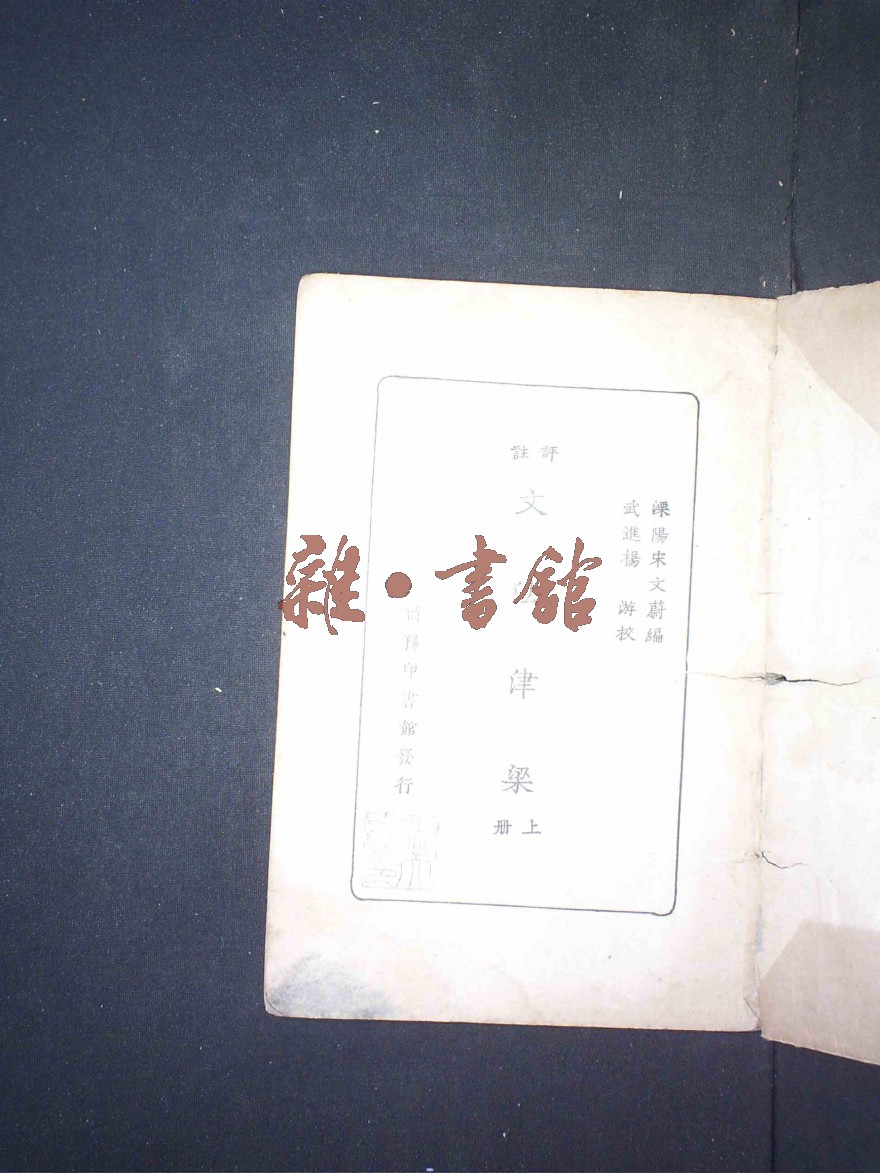 溧陽宋文蔚編
武進楊 游校
評註
文 津梁
上册
商務印書館發行
雜·書館